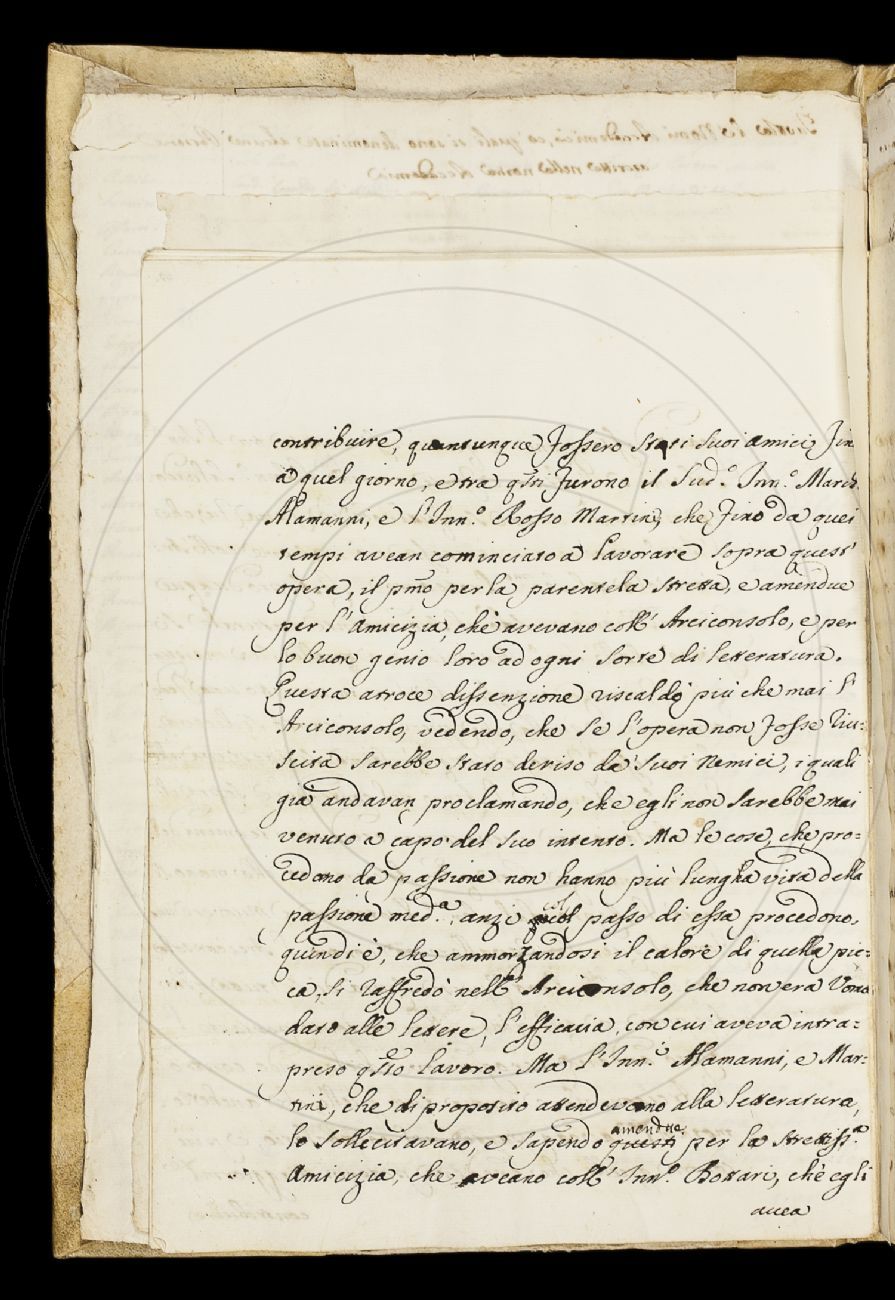 contribuire, quantunque fossero stati suoi amici fin
a quel giorno, e tra qsti furono il Sud.º Inn.º March.
Alamanni, e l'Inn.º Rosso Martini, che fino da quei
tempi avean cominciato a lavorare sopra quest'
opera, il pmo per la parentela stretta, e amendue
per l'Amicizia, che avevano coll'Arciconsolo, e per
lo buon genio loro ad ogni sorte di letteratura.
Questa atroce dissenzione riscaldò più che mai l'
Arciconsolo, vedendo, che se l'opera non fosse riu:
scita sarebbe stato deriso da' suoi Nemici, i quali
già andavan proclamando, che egli non sarebbe mai
venuto a capo del suo intento. Ma le cose, che pro:
cedono da passione non hanno più lungha vita della
passione med.ª, anzi col passo di essa procedono,
quindi è, che ammorzandosi il calore di quella pic:
ca, si raffredò nell'Arciconsolo, che non era Uomo
dato alle lettere, l'efficacia, con cui aveva intra:
preso qsto lavoro. Ma l'Inn.º Alamanni, e Mar:
tini, che di proposito attendevano alla letteratura,
lo sollecitavano, e sapendo amendue questi per la strettiss.ª
Amicizia, che aveano coll'Inn.º Bottari, che egli
avea